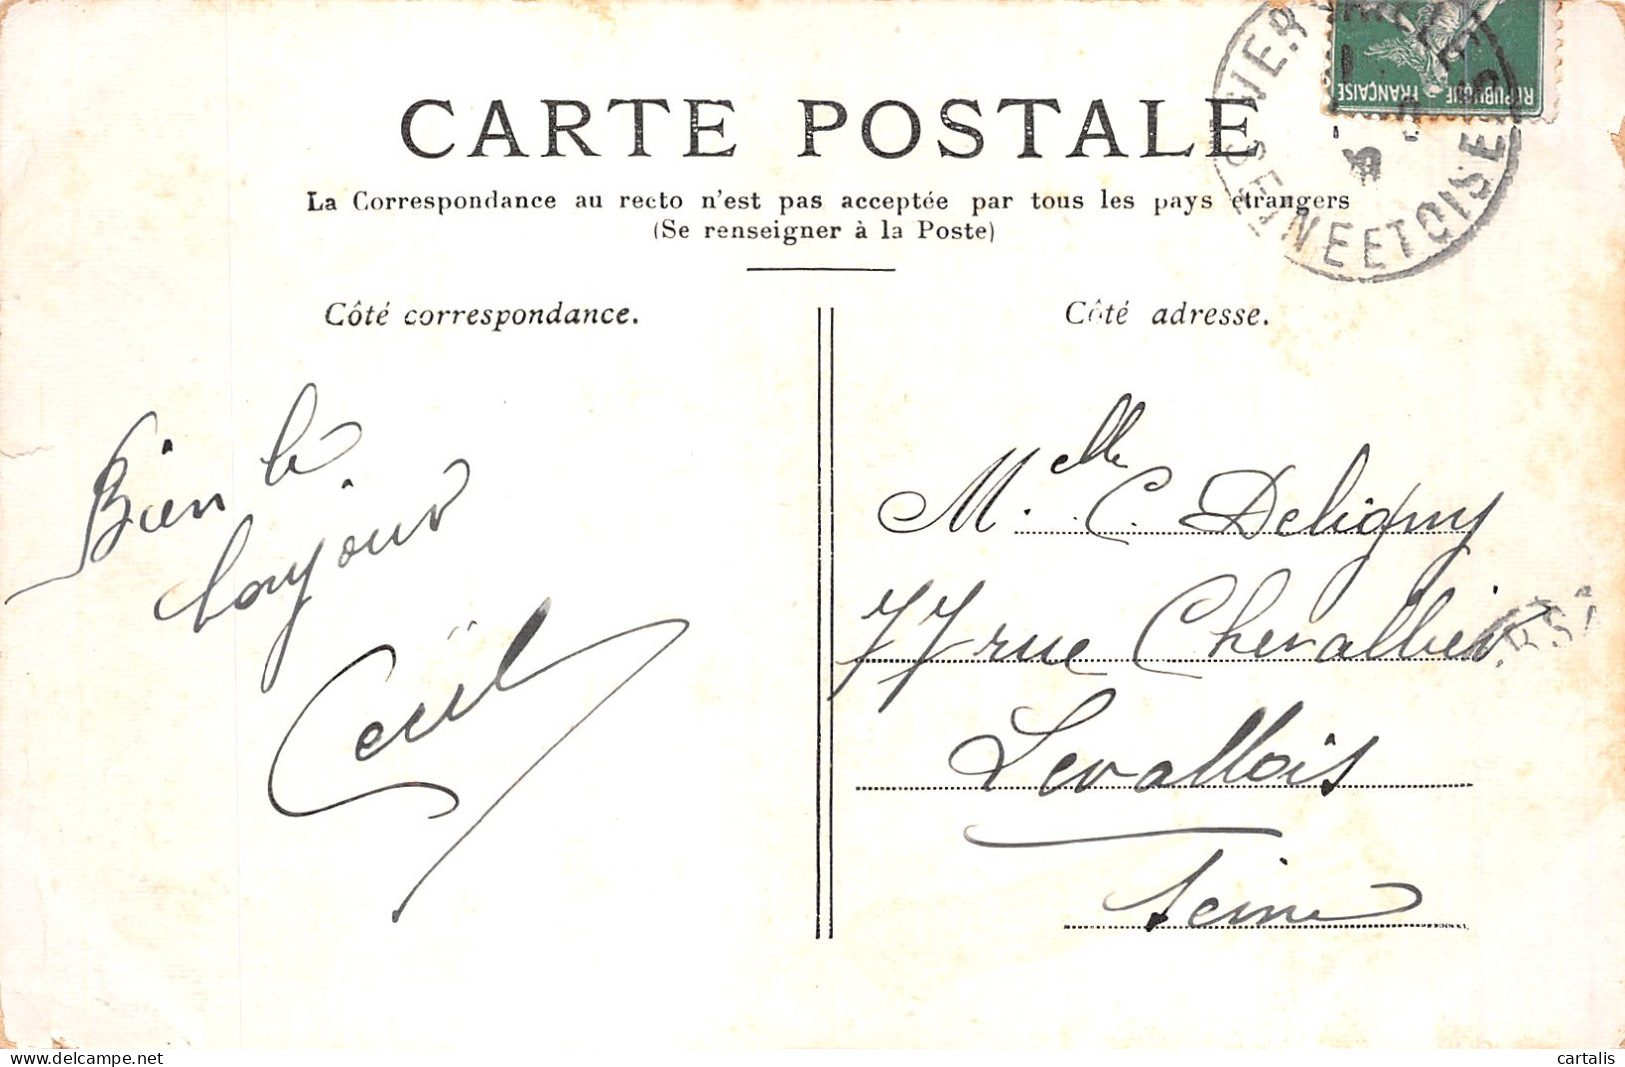 CARTE POSTALE
La Correspondance au recto n'est pas acceptée par tous les pays étrangers
(Se renseigner à la Poste)
Côté correspondance.
Côté adresse.
RÉPUBLIQUE FRANÇAISE
SEINE ET OISE
Bien le
bonjour
Cecil
Melle C. Deligny
77 rue Chevallier
Levallois
Seine
cartalis